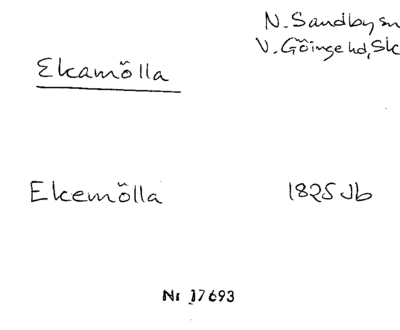 N. Sandby sn
V. Göinge hd, Sk
Ekamölla
Ekemölla
1825 Jb
Nr 17693